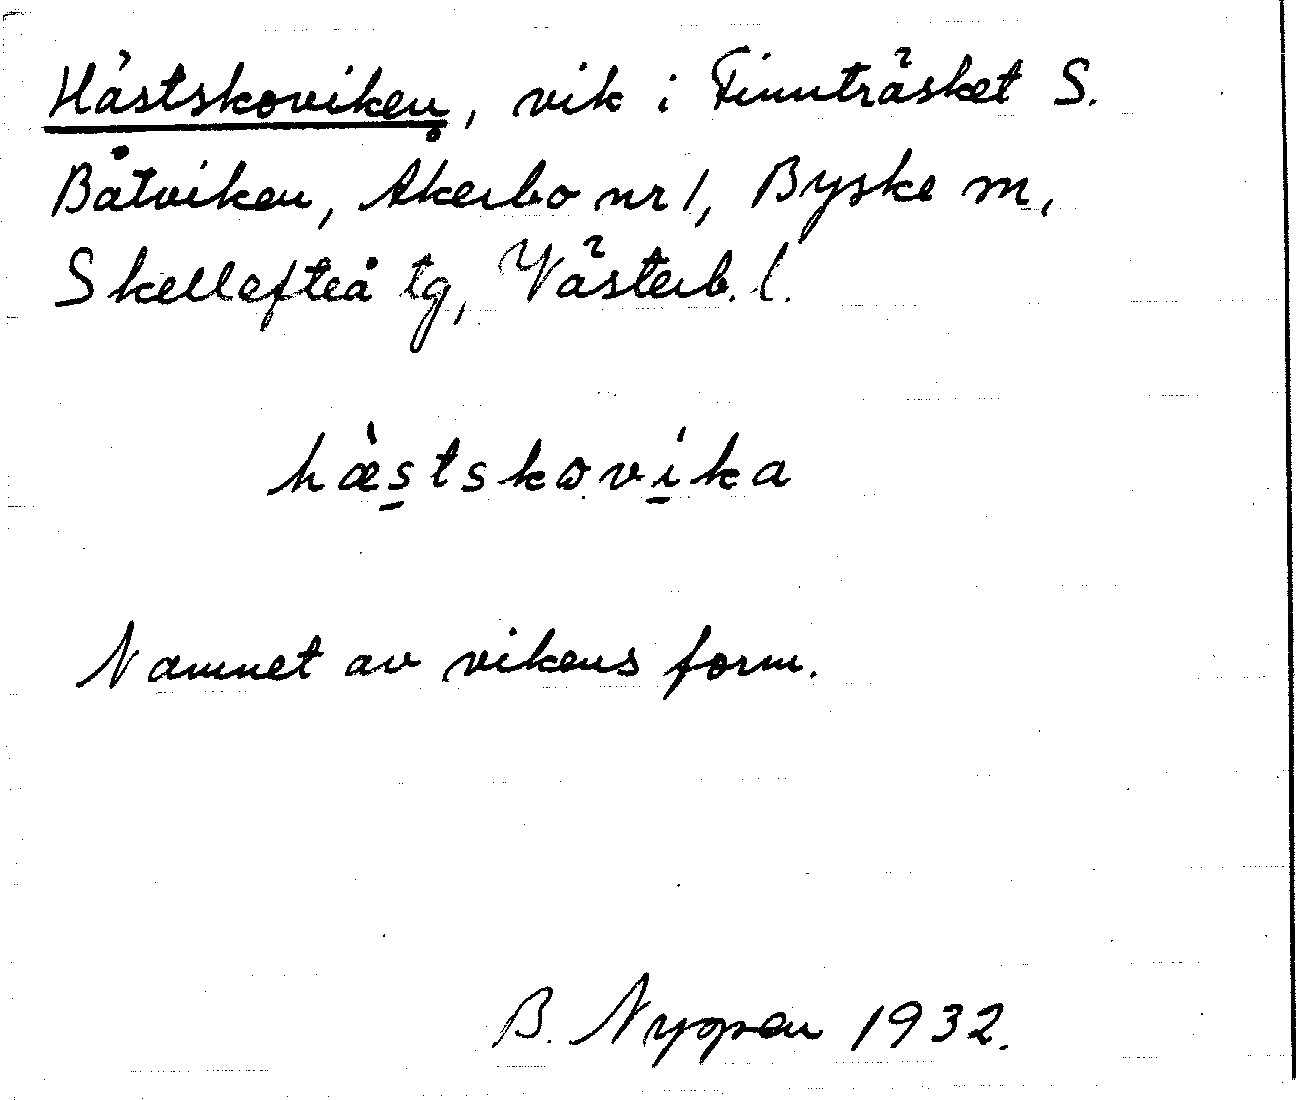 Hästskoviken, vik i Finnträsket S.
Båtviken, Åkerbo nr 1, Byske m,
Skellefteå tg, Västerb. l.
hæ̀stskovíka
Namnet av vikens form.
B. Nygren 1932.